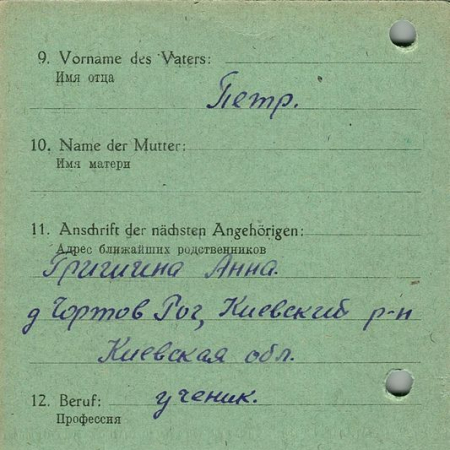 9. Vorname des Vaters:
Имя отца
Петр.
10. Name der Mutter:
Имя матери
11. Anschrift der nächsten Angehörigen:
Адрес ближайших родственников
Гришина Анна.
д Чортов Рог, Киевский р-н
Киевская обл.
12. Beruf: ученик.
Профессия